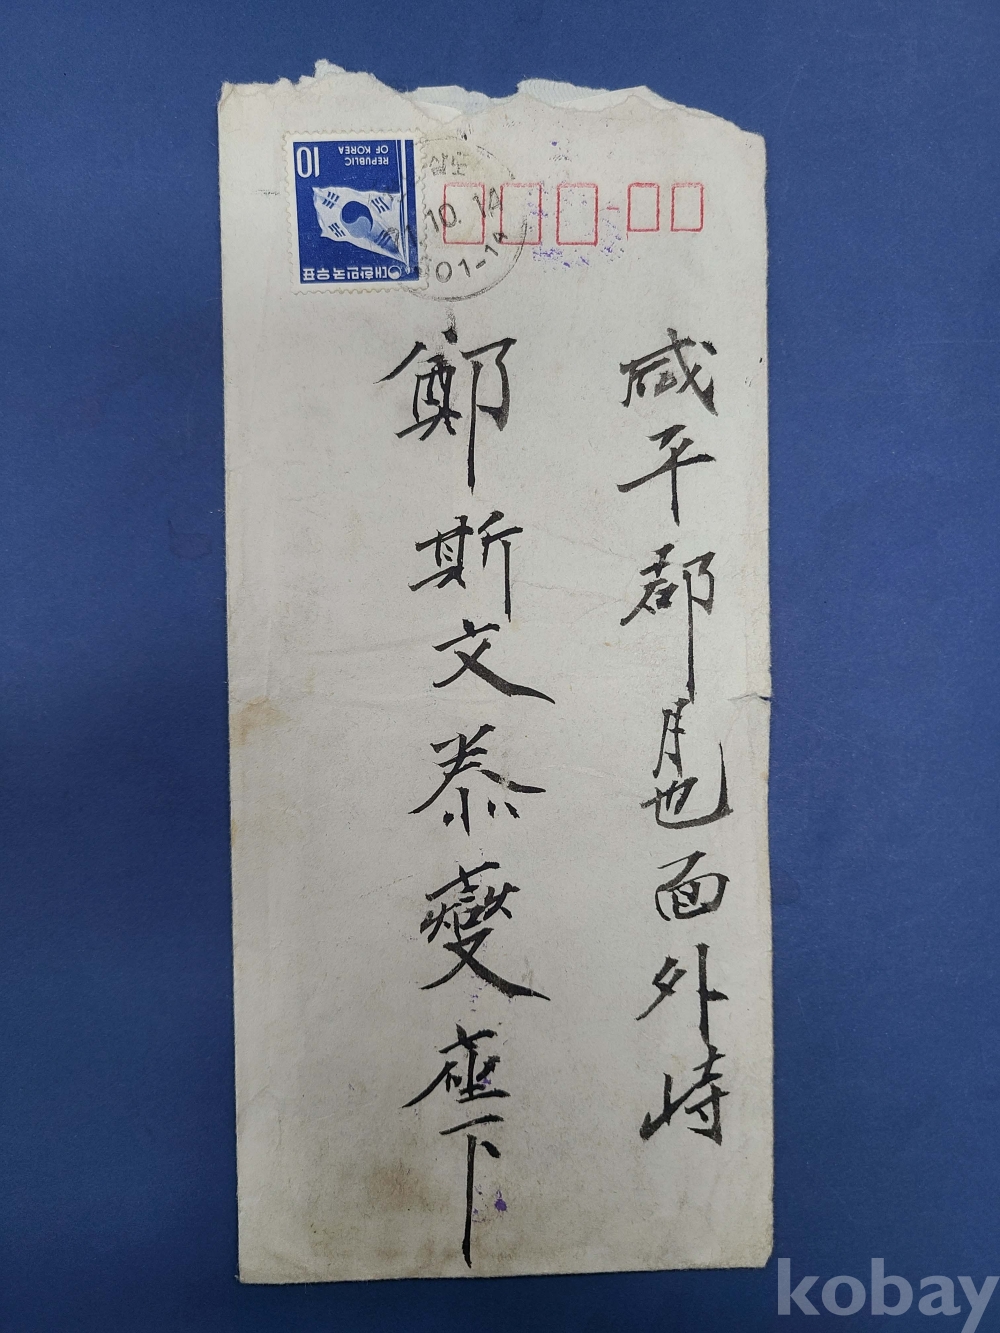 咸平郡月也面外峙
鄭斯文泰燮座下
10
REPUBLIC
OF KOREA
대한민국우표
삼도
71.10.14
kobay